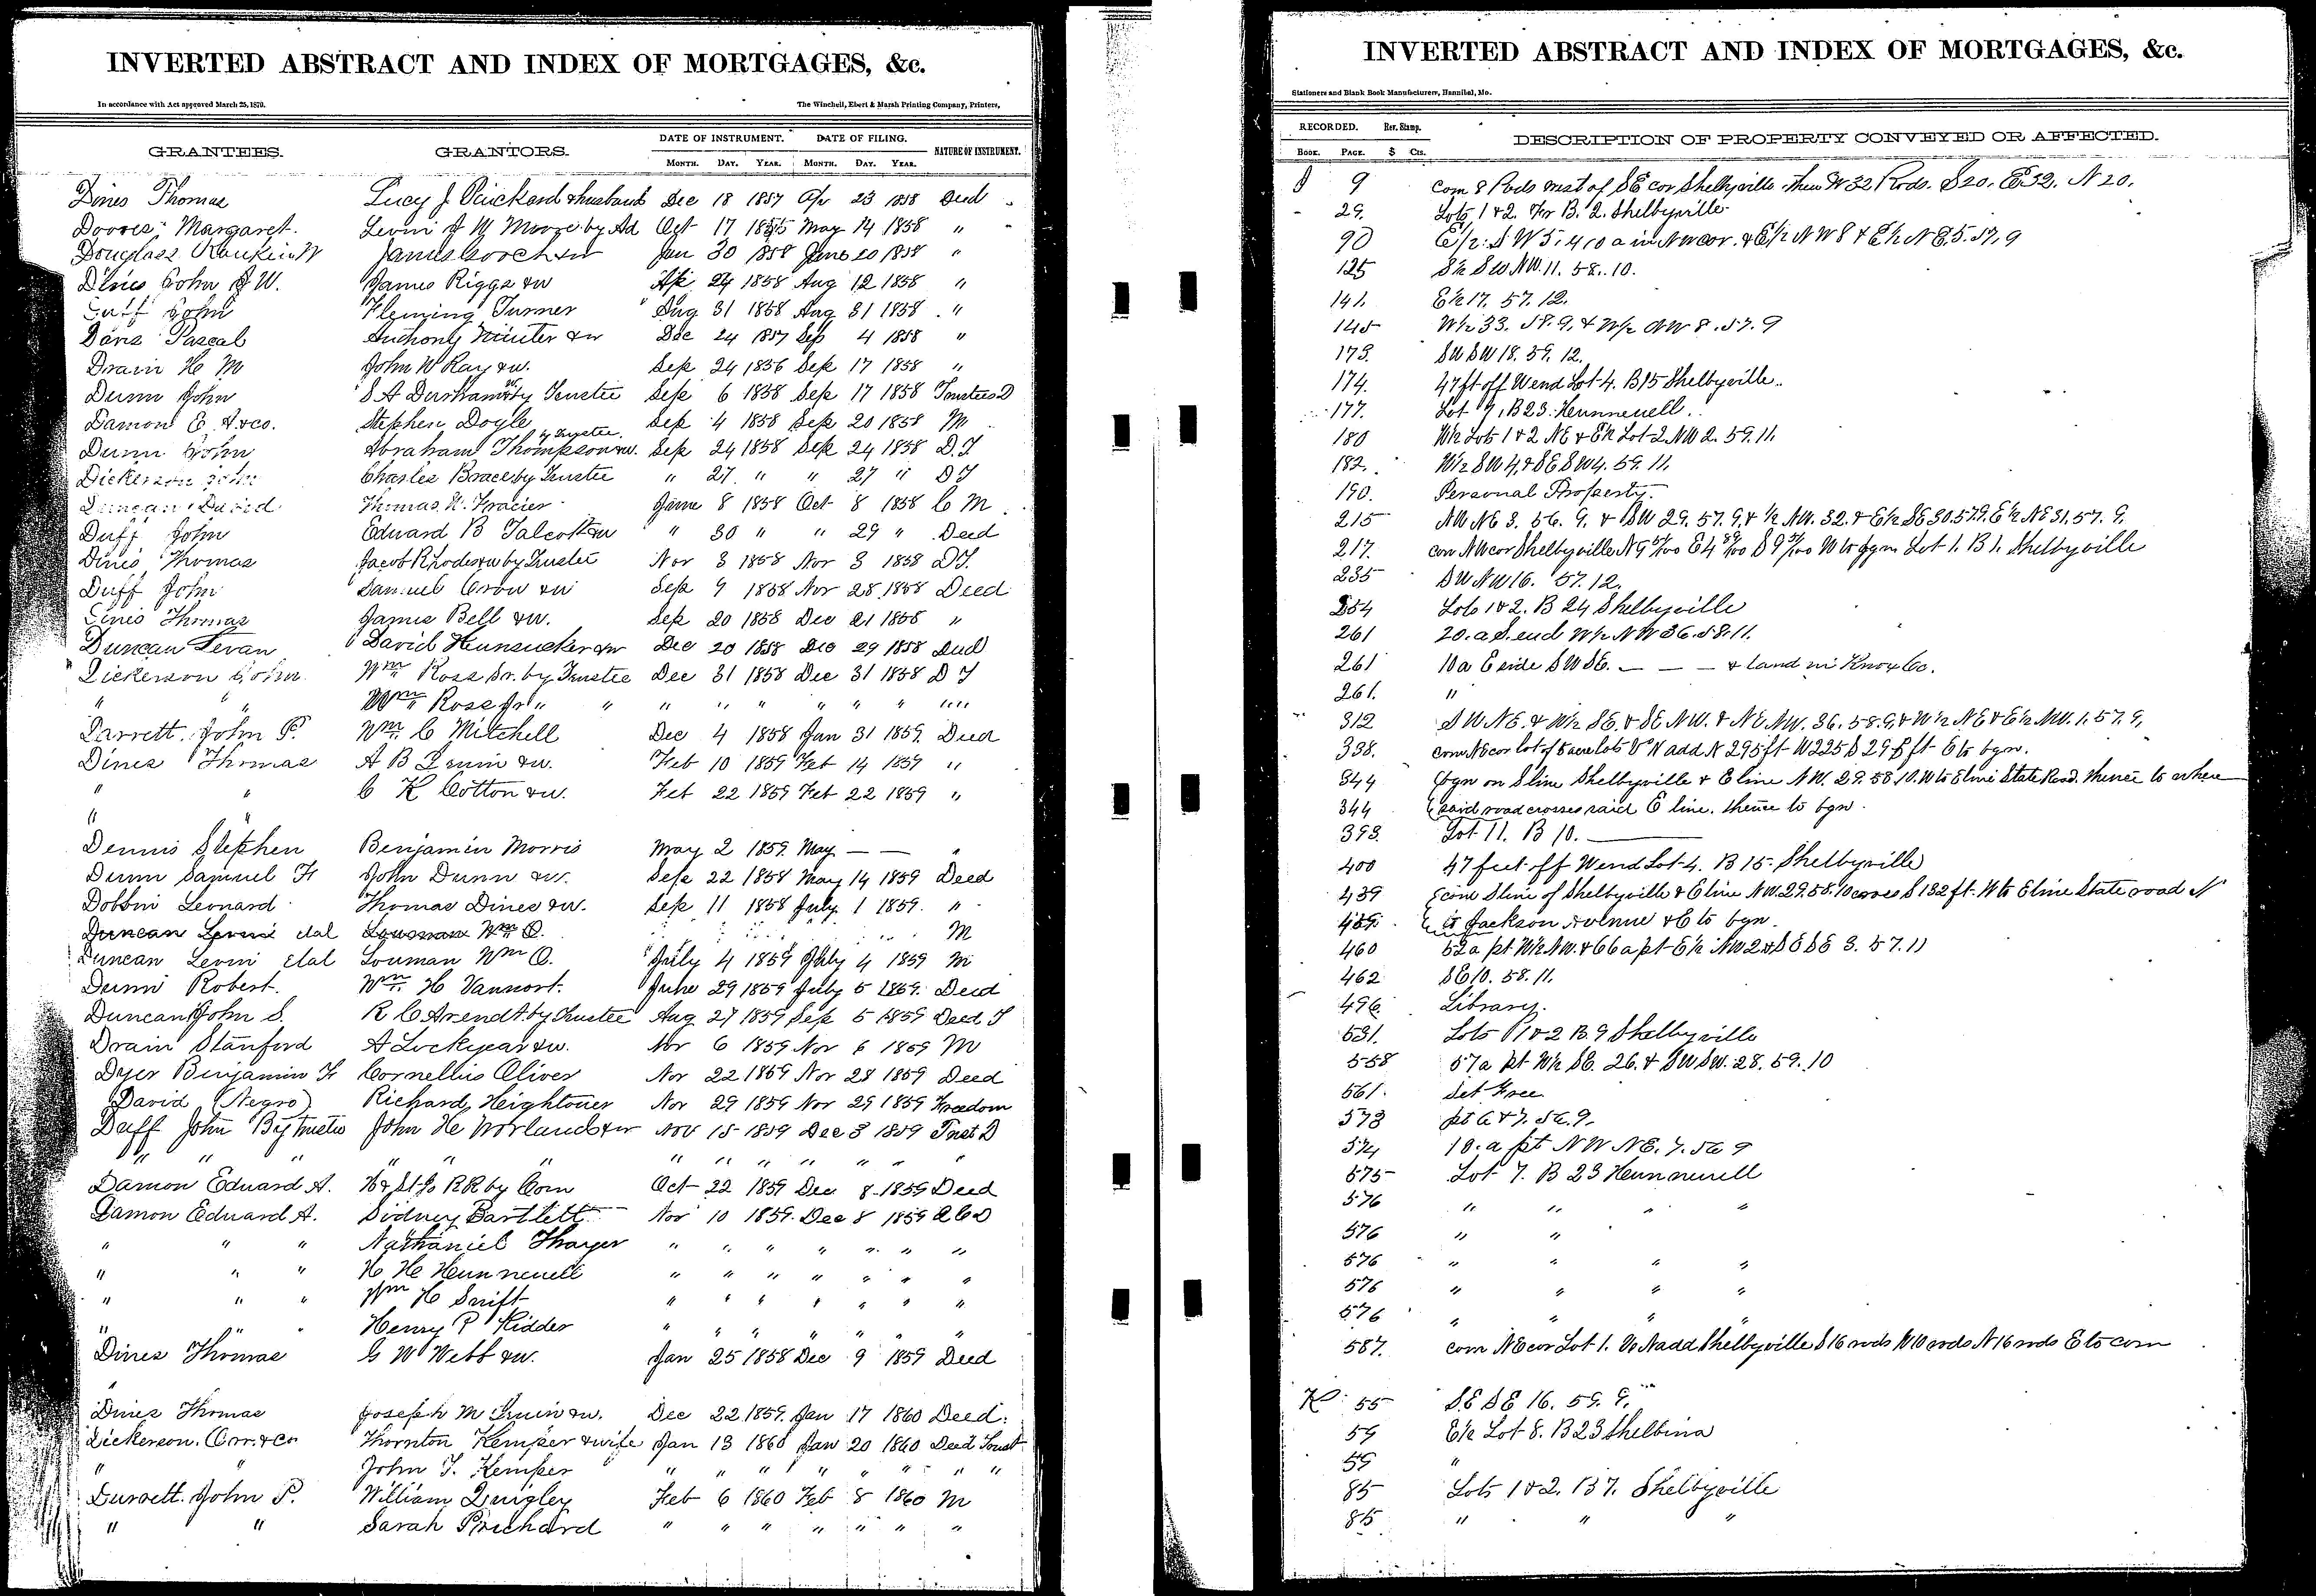 INVERTED ABSTRACT AND INDEX OF MORTGAGES, &c.
In accordance with Act approved March 25, 1870. The Winchell, Ebert & Marsh Printing Company, Printers,
DATE OF INSTRUMENT. DATE OF FILING.
GRANTEES. GRANTORS. NATURE OF INSTRUMENT.
MONTH. DAY. YEAR. MONTH. DAY. YEAR.
Dines Thomas Lucy J. & husband Dec 18 1857 Ap 23 1858 Deed
Margaret. Levin J M Moore by Ad Oct 17 May 14 1858 "
Douglass James Gooch &w Jan 30 1858 June 20 1858 "
Dines John J W. James Riggs &w Ap 24 1858 Aug 12 1858 "
Duff John Fleming Turner Aug 31 1858 Aug 31 1858 "
Davis Pascal Anthony Minter &w Dec 24 1857 Sep 4 1858 "
Drain H M John W Ray &w. Sep 24 1856 Sep 17 1858 "
Dunn John S A by Trustee Sep 6 1858 Sep 17 1858 Trustees D
Damon E. A. & co. Stephen Doyle Sep 4 1858 Sep 20 1858 M
Dunn John Abraham Thompson &w. by Trustee. Sep 24 1858 Sep 24 1858 D. T
Dickerson John Charles Brace by Trustee " 27 " " 27 " D T
Duncan David Thomas June 8 1858 Oct 8 1858 C M
Duff John Edward B Talcott &w " 30 " " 29 " Deed
Dines Thomas Jacob R Rhodes &w by Trustee Nov 3 1858 Nov 3 1858 D T.
Duff John Samuel Crow &w Sep 9 1858 Nov 28 1858 Deed
Dines Thomas James Bell &w. Sep 20 1858 Dec 21 1858 "
Duncan Levan David Hunsucker &w Dec 20 1858 Dec 29 1858 Deed
Dickerson John Wm Ross Sr. by Trustee Dec 31 1858 Dec 31 1858 D T
" " Wm Ross Jr " " " " " " " " " "
John P. Wm C Mitchell Dec 4 1858 Jan 31 1859. Deed
Dines Thomas A B &w. Feb 10 1859 Feb 14 1859 "
" " C K Cotton &w. Feb 22 1859 Feb 22 1859 "
" "
Dennis Stephen Benjamin Morris May 2 1859. May — — "
Dunn Samuel F John Dunn &w. Sep 22 1858 May 14 1859 Deed
Dobbin Leonard Thomas Dines &w. Sep 11 1858 July 1 1859. "
Duncan Levin etal Wm O. M
Duncan Levin etal Louman Wm O. July 4 1859 July 4 1859 M
Dunn Robert. Wm H Vannort. June 29 1859 July 5 1859. Deed
Duncan John S. R C Arendt by Trustee Aug 27 1859 Sep 5 1859 Deed T
Drain Stanford A Lockyear &w. Nov 6 1859 Nov 6 1859 M
Dyer Benjamin F Cornelius Oliver Nov 22 1859 Nov 28 1859 Deed
David (Negro) Richard Heightower Nov 29 1859 Nov 29 1859 Freedom
Duff John By trustee John H Worland &w Nov 15 1859 Dec 3 1859 Trst D
" " " " " " " " " " " " "
Damon Edward A. H & St Jo RR by Com Oct 22 1859 Dec 8 1859 Deed
Damon Edward A. Sidney Bartlett Nov 10 1859. Dec 8 1859 Q C D
" " " Nathaniel Thayer " " " " " " "
" " " H H Hunnewell " " " " " " "
" " " Wm H Swift " " " " " " "
" " " Henry P Kidder " " " " " " "
Dines Thomas G W Webb &w. Jan 25 1858 Dec 9 1859 Deed
Dines Thomas Joseph M Irwin &w. Dec 22 1859. Jan 17 1860 Deed.
Dickerson. Orr. & Co Thornton Kemper & wife Jan 13 1860 Jan 20 1860 Deed Trust
" " John T. Kemper " " " " " " " "
Durrett. John P. William Quigley Feb 6 1860 Feb 8 1860 M
" " Sarah Prichard " " " " " " "
INVERTED ABSTRACT AND INDEX OF MORTGAGES, &c.
Stationers and Blank Book Manufacturers, Hannibal, Mo.
RECORDED. Rev. Stamp.
DESCRIPTION OF PROPERTY CONVEYED OR AFFECTED.
BOOK. PAGE. $ Cts.
J 9 com 8 Rods west of SE cor Shelbyville. then W 32 Rods. S 20. E 32. N 20.
29. Lots 1 & 2. B. 2. Shelbyville
90 E 1/2 S W 5. & 10 a in NW cor. & E 1/2 NW 8 & E 1/2 NE 5. 57. 9
125 S 1/2 SW NW. 11. 58. 10.
141. E 1/2 17. 57. 12.
145 W 1/2 33. 58. 9. & W 1/2 NW 8. 57. 9
173. SW SW 18. 59. 12.
174. 47 ft off W end Lot 4. B 15 Shelbyville.
177. Lot 7. B 23. Hunnewell.
180 W 1/2 Lots 1 & 2 NE & E 1/2 Lot 2 NW 2. 59. 11.
182. W 1/2 SW 4, & SE SW 4. 59. 11.
190. Personal Property.
215 NW NE 3. 56. 9. & SW 29. 57. 9, & 1/2 NW. 32. & E 1/2 SE 30. 57. 9. E 1/2 NE 31. 57. 9.
217. com NW cor Shelbyville to bgn Lot 1. B 1. Shelbyville
235 SW NW 16. 57. 12.
254 Lots 1 & 2. B 24 Shelbyville
261 20. a S. end W 1/2 NW 36. 58. 11.
261 10 a E side SW SE. — — — & land in Knox Co.
261. "
312 SW NE. & W 1/2 SE. & SE NW. & NE NW. 36. 58. 9. & W 1/2 NE & E 1/2 NW. 1. 57. 9.
338. com NE cor lot of 5 acre lots add. N 295 ft W 225 S 295 ft E to bgn.
344 bgn on S line Shelbyville & E line NW. 29. 58. 10. W to E line State Road. thence to where
344 said road crosses said E line. thence to bgn.
393. Lot 11. B 10. —
400 47 feet off W end Lot 4. B 15. Shelbyville
439 com S line of Shelbyville & E line NW. 29. 58. 10 S 132 ft. W to E line State road N
459. to Jackson Avenue & E to bgn.
460 52 a pt W 1/2 NW. & 66 a pt E 1/2 NW 2 & SE SE 3. 57. 11
462 SE 10. 58. 11.
496. Library.
531. Lots 1 & 2 B. 9 Shelbyville
558 57 a pt W 1/2 SE. 26. & SW SW. 28. 59. 10
561. Set Free
573 pt 6 & 7. 56. 9.
574 10. a pt NW NE. 7. 56 9
575 Lot 7. B 23 Hunnewell
576 " " " "
576 " "
576 " " " "
576 " " " "
576 " " " "
587. com NE cor Lot 1. add Shelbyville S 16 rods W 10 rods N 16 rods E to com
K 55 SE SE 16. 59. 9.
59 E 1/2 Lot 8. B 23 Shelbina
59 "
85 Lots 1 & 2. B 7. Shelbyville
85 " " "